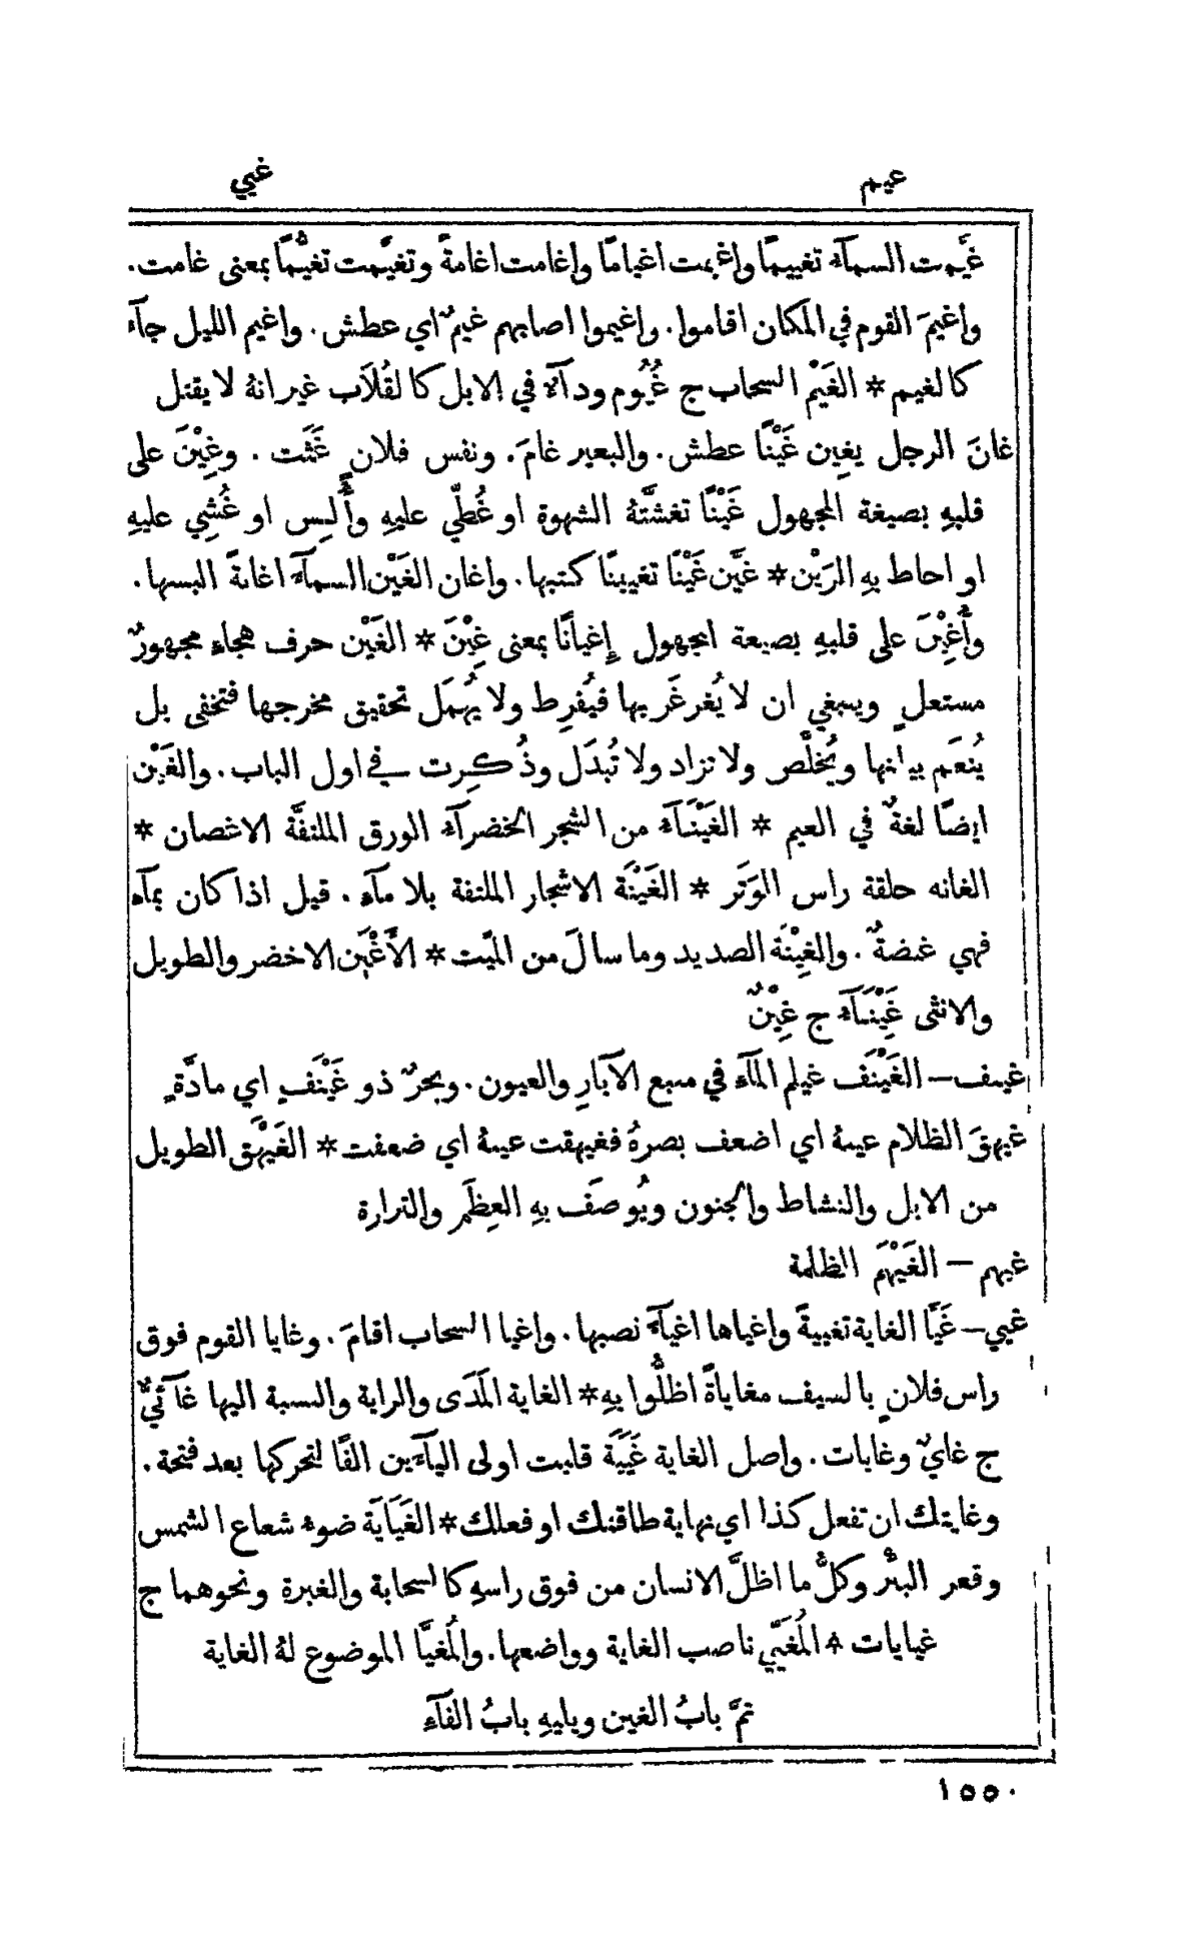 غيم
غيي
غيَّمت السمآء تغييمًا واغيمت اغيامًا واغامت اغامةً وتغيَّمت تغيُّمًا بمعنى غامت.
واغيمَ القوم في المكان اقاموا. واغيموا اصابهم غيمٌ اي عطش. واغيم الليل جآء
كالغيم * الغَيْم السحاب ج غُيُوم ودآء في الابل كالقُلاَب غير انهُ لا يقتل
غانَ الرجل يغِين غَيْنًا عطش. والبعير غامَ. ونفس فلانٍ غَثَت. وغِيْنَ على
قلبهِ بصيغة المجهول غَيْنًا تغشَّتهُ الشهوة او غُطِّي عليهِ وأُلبِس او غُشِي عليهِ
او احاط بهِ الرَيْن * غيَّن غَيْنًا تغيينًا كتبها. واغان الغَيْن السمآء اغانةً البسها.
وأُغِيْنَ على قلبهِ بصيغة المجهول إِغيانًا بمعنى غِيْنَ * الغَيْن حرف هجاءٍ مجهورٌ
مستعلٍ وينبغي ان لا يُغرغَر بها فيُفرِط ولا يُهمَل تحقيق مخرجها فتخفى بل
يُنعَم بيانها ويُخلَّص ولا تزاد ولا تُبدَل وذُكِرت في اول الباب. والغَيْن
ايضًا لغةٌ في الغيم * الغَيْنَآء من الشجر الخضرآء الورق الملتفَّة الاغصان *
الغانه حلقة راس الوَتَر * الغَيْنَة الاشجار الملتفة بلا مآء. قيل اذا كان بمآء
فهي غيضةٌ. والغِيْنَة الصديد وما سالَ من الميّت * الأَغْيَن الاخضر والطويل
والانثى غَيْنَآء ج غِيْنٌ
غينف – الغَيْنَف غيلم المآء في منبع الآبارِ والعيون. وبحرٌ ذو غَيْنَفٍ اي مادَّةٍ
غيهقَ الظلام عينهُ اي اضعف بصرهُ فغيهقت عينهُ اي ضعفت * الغَيْهَق الطويل
من الابل والنشاط والجنون ويُوصَف بهِ العِظَم والترارة
غيهم – الغَيْهَم الظلمة
غيي – غَيَّا الغاية تغييةً واغياها اغيآءً نصبها. واغيا السحاب اقامَ. وغايا القوم فوق
راس فلانٍ بالسيف مغاياةً اظلُّوا بهِ * الغاية المَدَى والراية والنسبة اليها غآئيٌّ
ج غايٌ وغايات. واصل الغاية غَيَيَة قلبت اولى اليآءين الفًا لتحركها بعد فتحة.
وغايتك ان تفعل كذا اي نهاية طاقتك او فعلك * الغَيَايَة ضوء شعاع الشمس
وقعر البئر وكلُّ ما اظلَّ الانسان من فوق راسهِ كالسحابة والغبرة ونحوهما ج
غيايات * المُغَيِّي ناصب الغاية وواضعها. والمُغيَّا الموضوع لهُ الغاية
تمَّ بابُ الغين ويليهِ بابُ الفآء
١٥٥٠